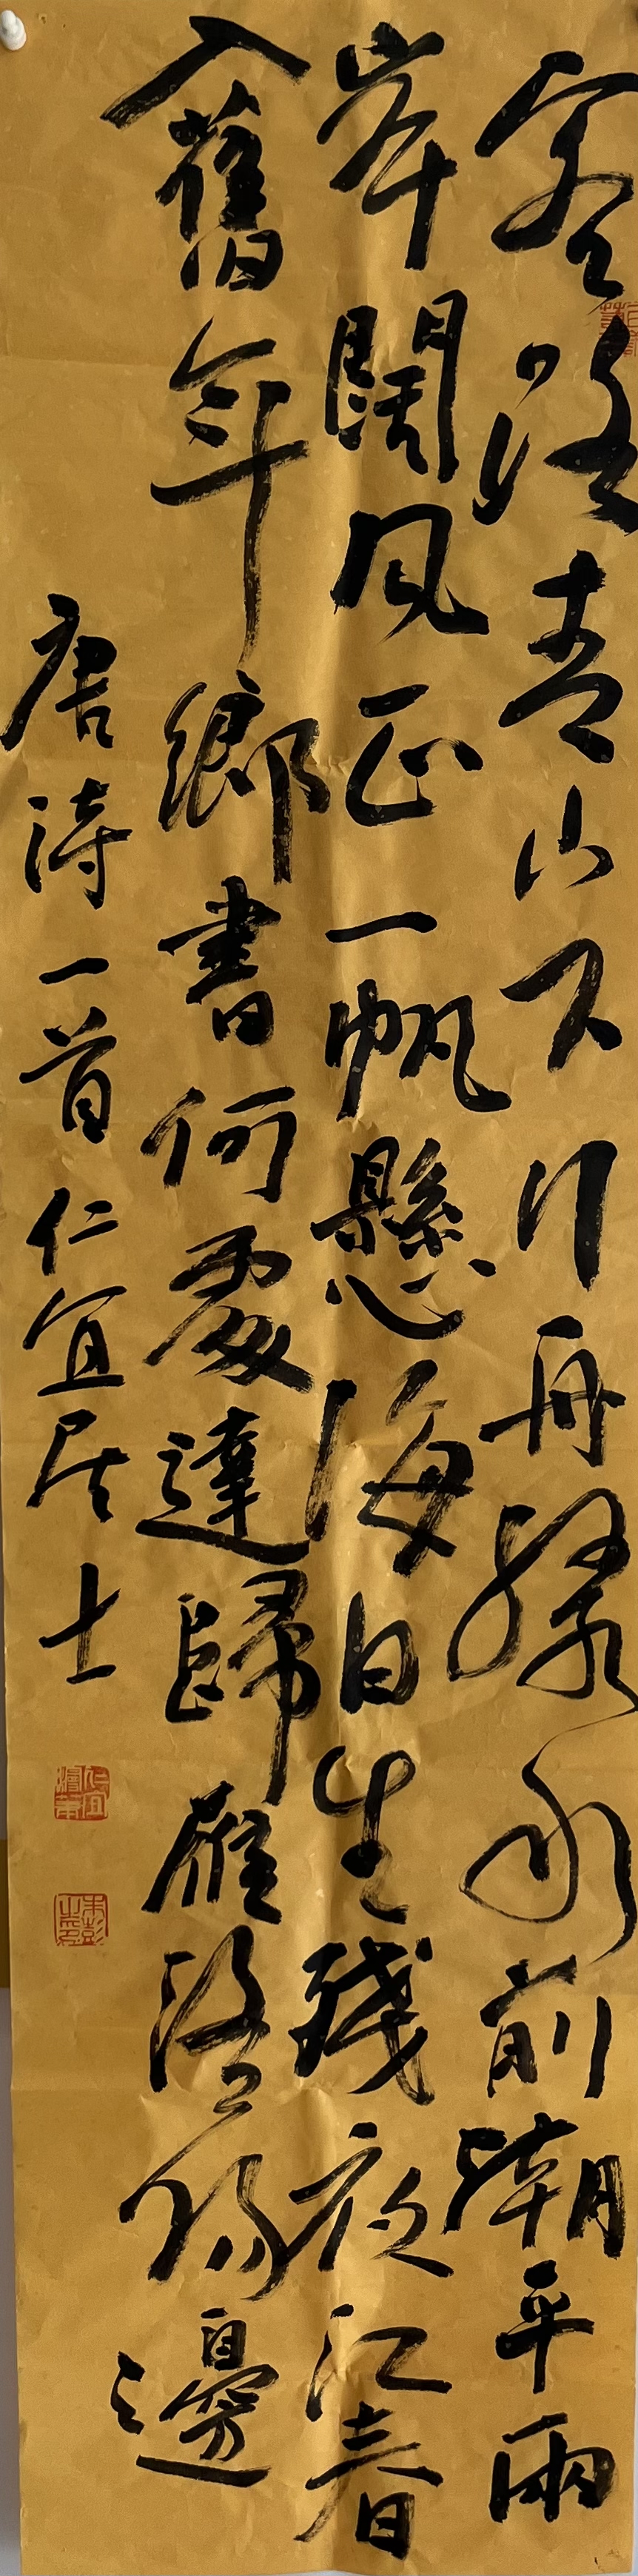 客路青山下行舟綠水前潮平兩
岸闊風正一帆懸海日生殘夜江春
入舊年鄉書何處達歸雁洛陽邊
唐詩一首仁宜居士
朱彭之印